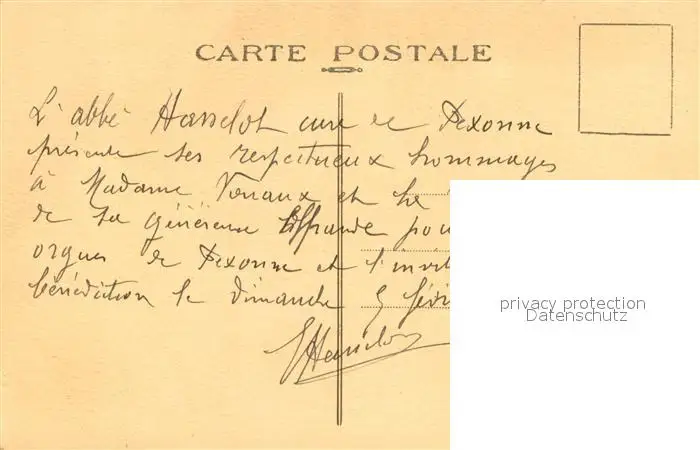 CARTE POSTALE
L'abbé Hanselot curé de Pexonne
présente ses respectueux hommages
à Madame et
de sa généreuse offrande pou
orgues de Pexonne et l'invit
bénédiction le dimanche 5 févr
privacy protection
Datenschutz